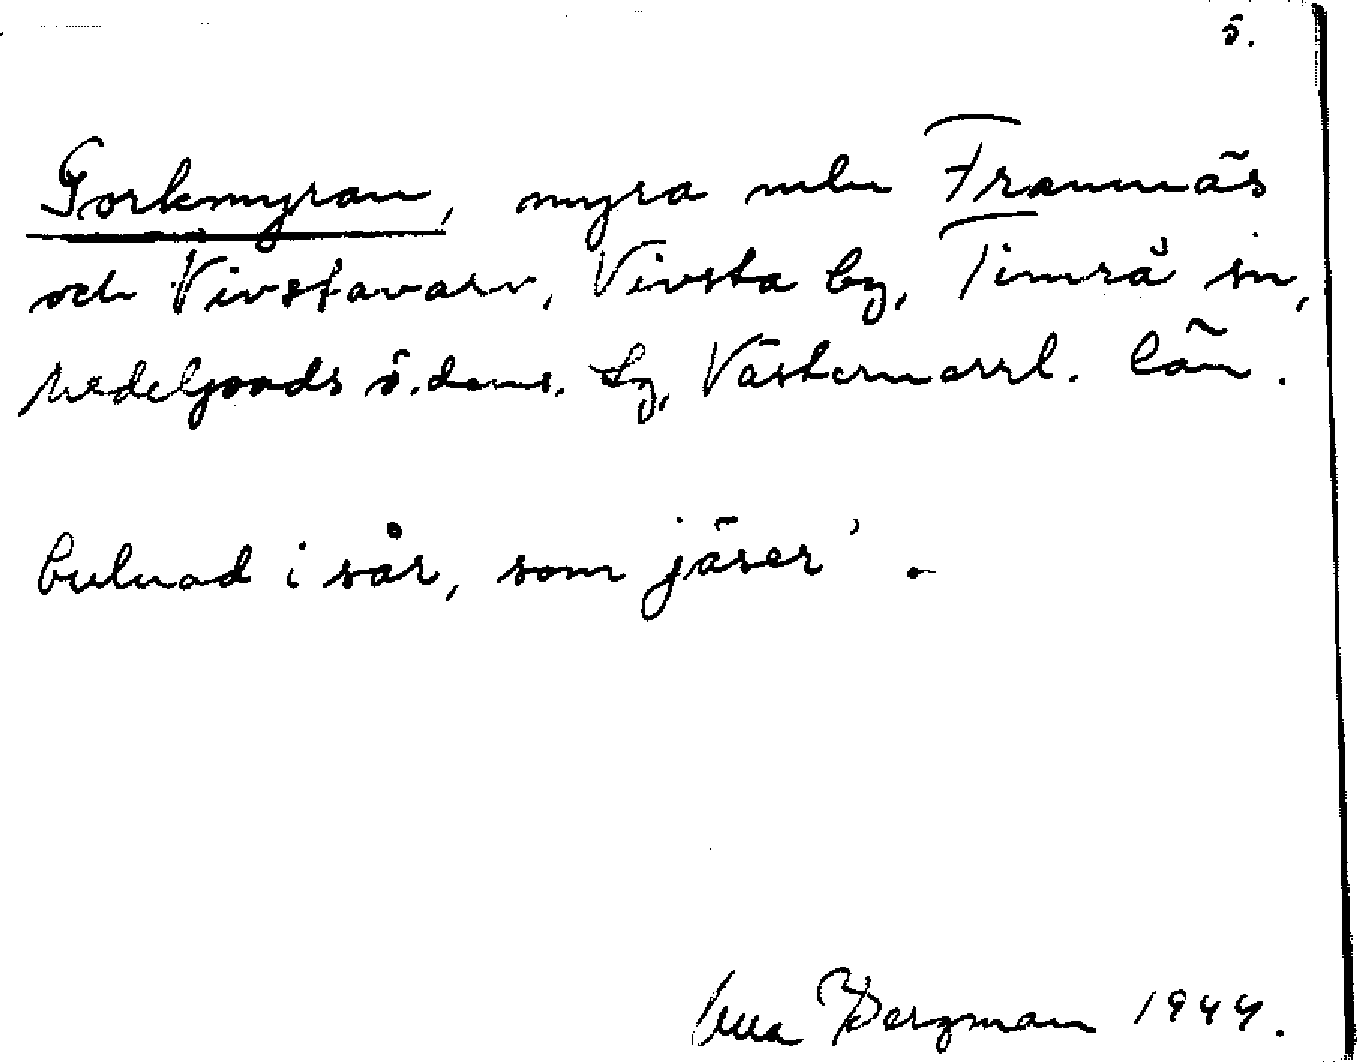 5.
Gorkmyran, myra mln Framnäs
och Vivstavarv, Vivsta by, Timrå sn,
Medelpads ö. doms. tg, Västernorrl. län.
bulnad i sår, som jäser' .
Bergman 1944.